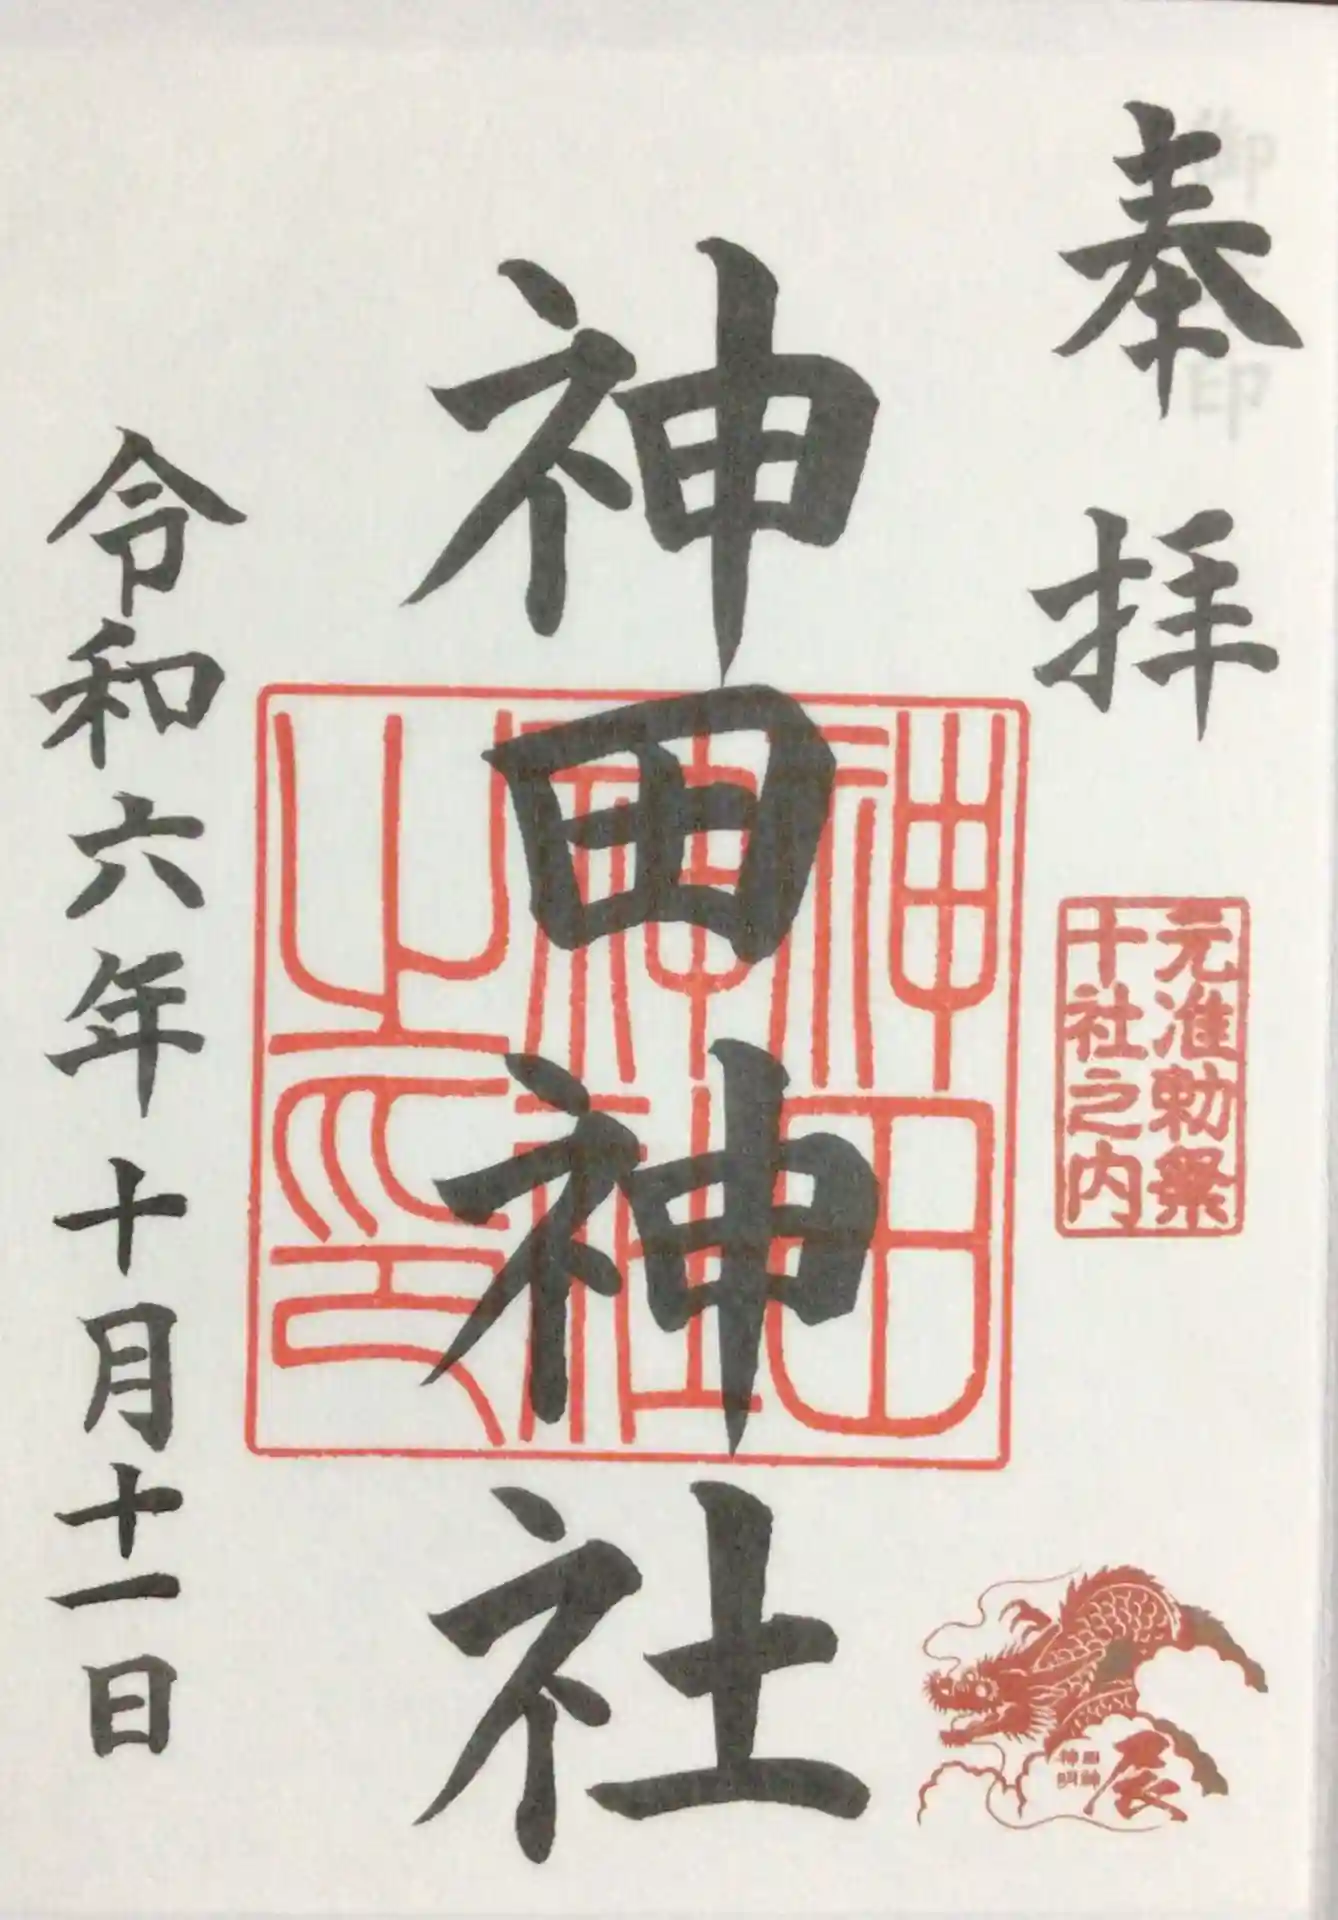 奉拝
元准勅祭
十社之内
辰
神田神社
神田
神社
之印
令和六年十月十一日
御朱印